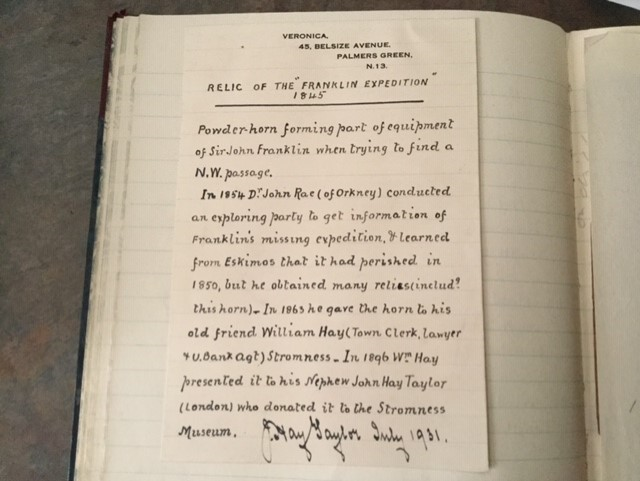 VERONICA,
45, BELSIZE AVENUE,
PALMERS GREEN,
N.13.
RELIC OF THE "FRANKLIN EXPEDITION"
1845
Powder-horn forming part of equipment
of Sir John Franklin when trying to find a
N.W. passage.
In 1854 Dr. John Rae (of Orkney) conducted
an exploring party to get information of
Franklin's missing expedition, & learned
from Eskimos that it had perished in
1850, but he obtained many relics (includg.
this horn) - In 1863 he gave the horn to his
old friend William Hay (Town Clerk, lawyer
& U. Bank Agt) Stromness - In 1896 Wm Hay
presented it to his Nephew John Hay Taylor
(London) who donated it to the Stromness
Museum. J. Hay Taylor July 1931.